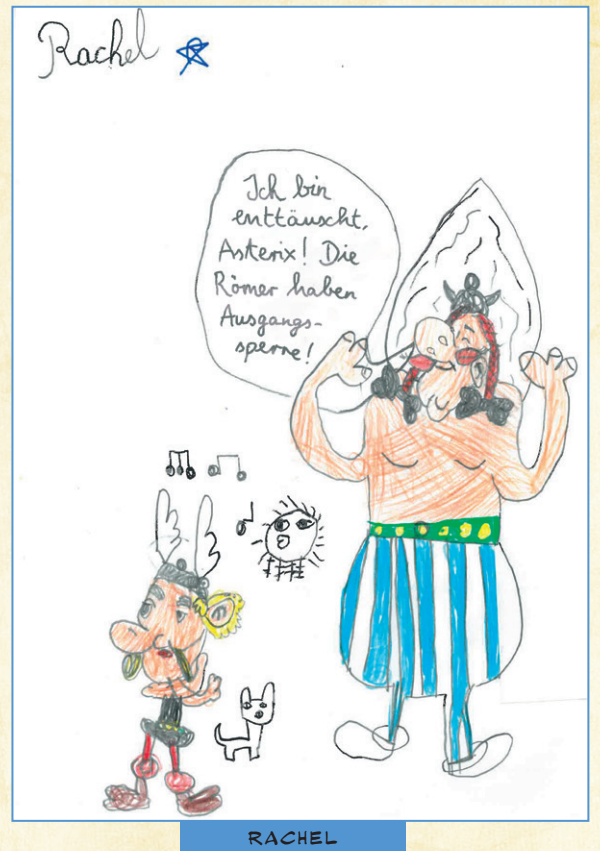 Rachel
Ich bin
enttäuscht,
Asterix! Die
Römer haben
Ausgangs-
sperre!
RACHEL